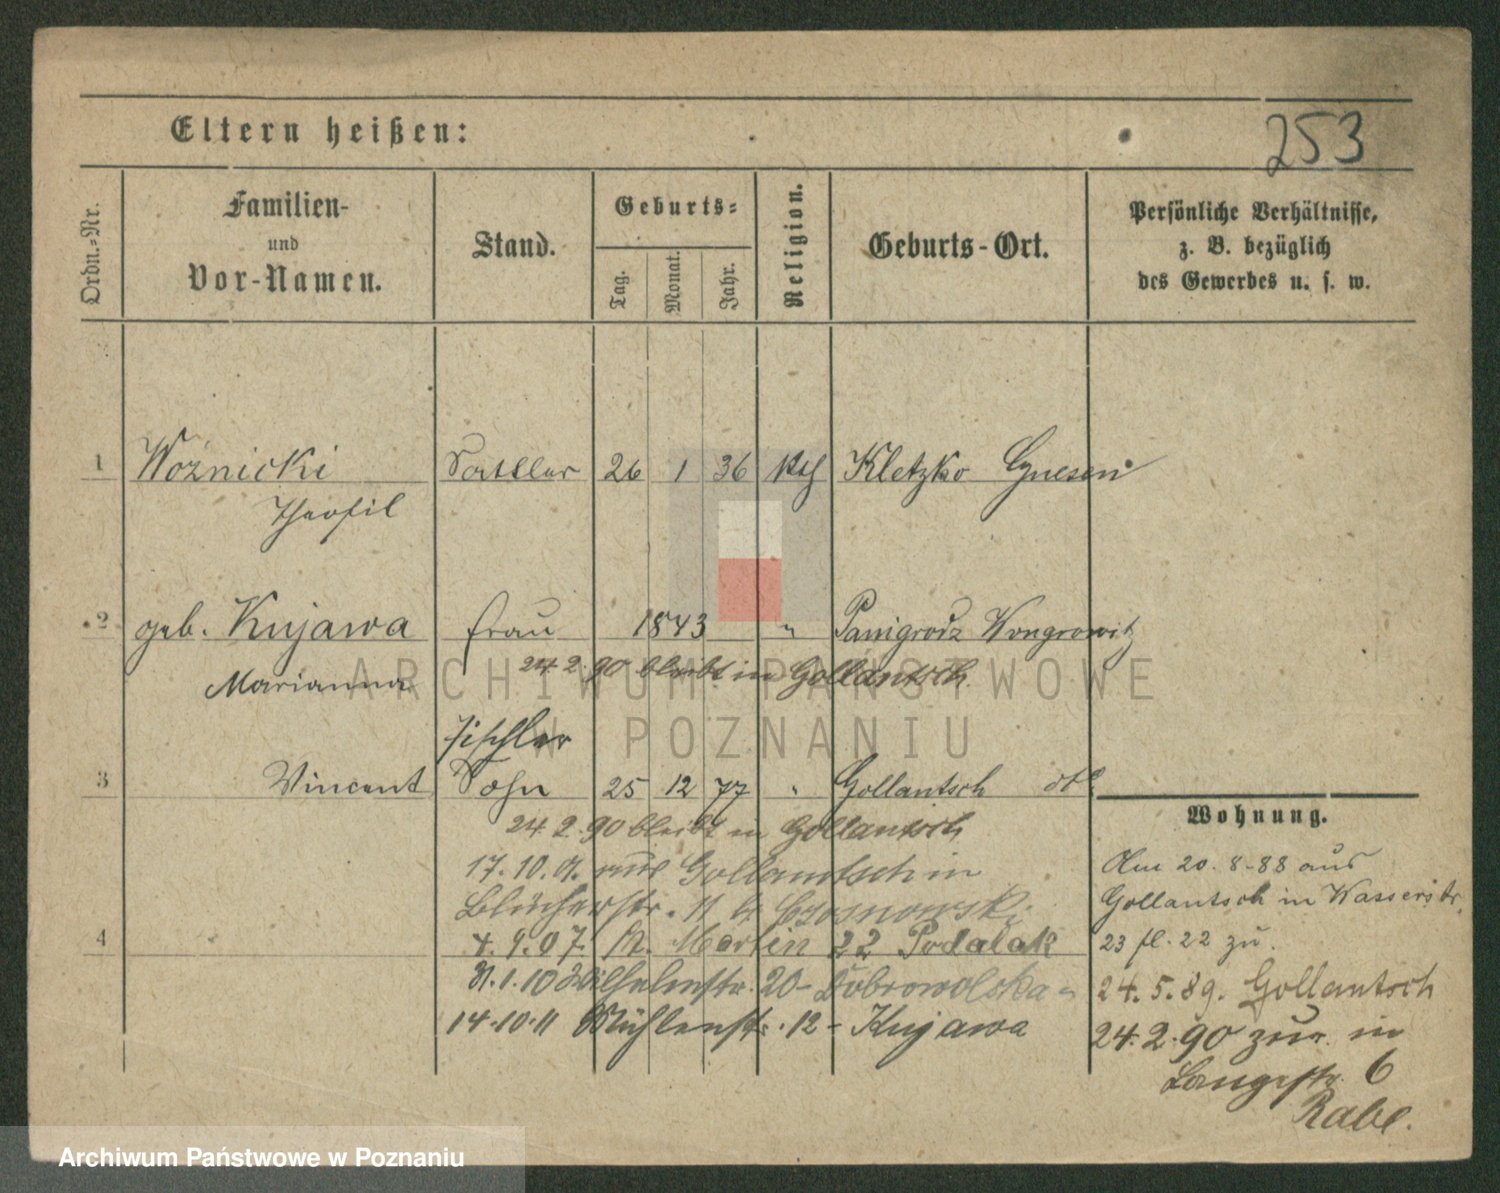 Eltern heißen:
253
Ordn.-Nr.
Familien-
und
Vor-Namen.
Stand.
Geburts-
Tag.
Monat.
Jahr.
Religion.
Geburts-Ort.
Persönliche Verhältnisse,
z. B. bezüglich
des Gewerbes u. s. w.
1 Woźnicki Sattler 26 1 36 Kth Kletzko Gnesen
Theofil
2 geb. Kujawa Frau 1843 " Panigrodz Wongrowitz
Marianna 24.2.90 bleibt in Gollantsch
Tischler
3 Vincent Sohn 25 12 77 " Gollantsch
24.2.90 bleibt in Gollantsch
17.10. aus Gollantsch in
Blücherstr. 11
4 4.9.07. St. Martin 22 Podalak
31.1.10 Wilhelmstr. 20- Dobrowolska
14.10.11 Mühlenstr. 12- Kujawa
Wohnung.
Am 20.8-88 aus
Gollantsch in Wasserstr.
23 fl. 22 zu.
24.5.89. Gollantsch
24.2.90 zur. in
Langestr. 6
Rabe.
ARCHIWUM PAŃSTWOWE
W POZNANIU
Archiwum Państwowe w Poznaniu